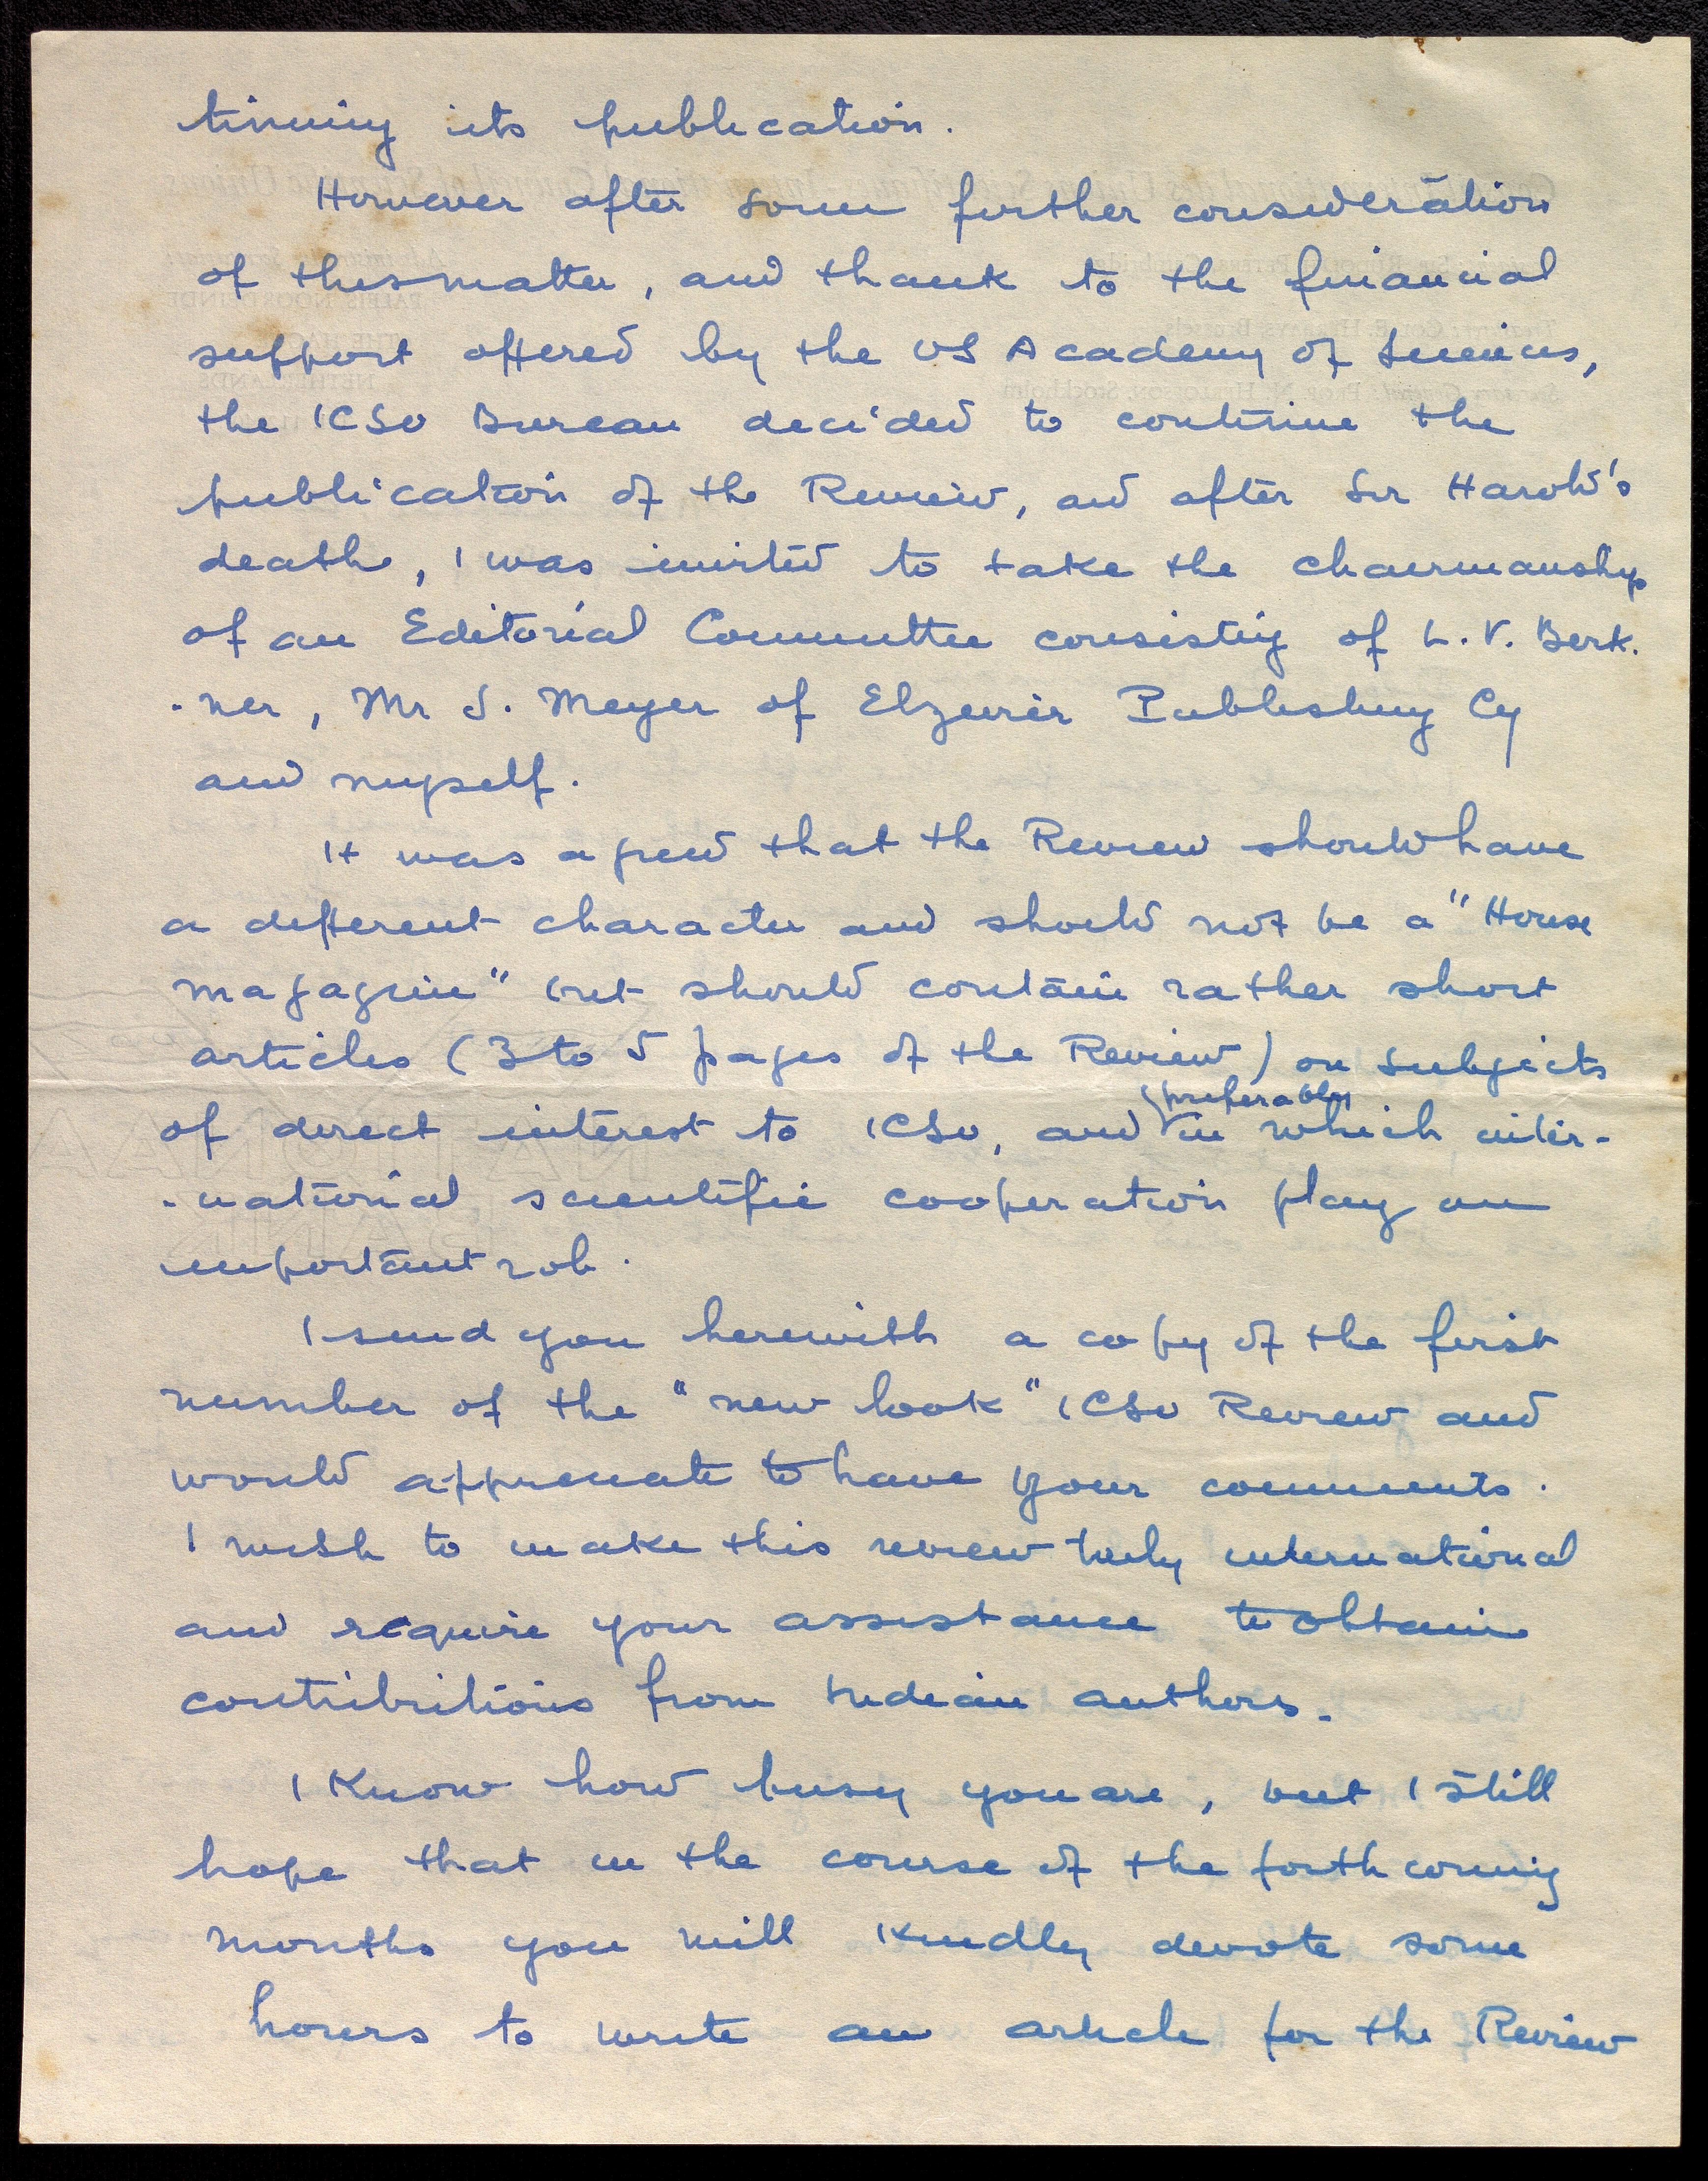 tinuing its publication.
However after some further consideration
of this matter, and thank to the financial
support offered by the US Academy of Sciences,
the ICSU Bureau decided to continue the
publication of the Review, and after Sir Harold's
death, I was invited to take the chairmanship
of an Editorial Committee consisting of L.V. Berk-
-ner, Mr S. Meyer of Elzevier Publishing Cy
and myself.
It was agreed that the Review should have
a different character and should not be a "House
magazine" but should contain rather short
articles (3 to 5 pages of the Review) on subjects
of direct interest to ICSU, and preferably in which inter-
-national scientific cooperation play an
important role.
I send you herewith a copy of the first
number of the "new look" ICSU Review and
would appreciate to have your comments.
I wish to make this review truly international
and require your assistance to obtain
contributions from Indian authors.
I know how busy you are, but I still
hope that in the course of the forthcoming
months you will kindly devote some
hours to write an article for the Review